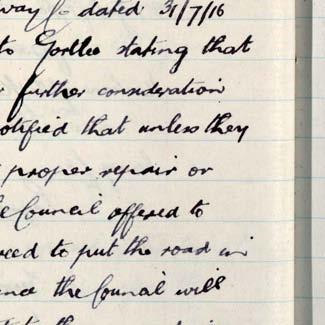 way Co dated 31/7/16
to Gortlee stating that
further consideration
notified that unless they
proper repair or
Council offered to
reed to put the road in
the Council will